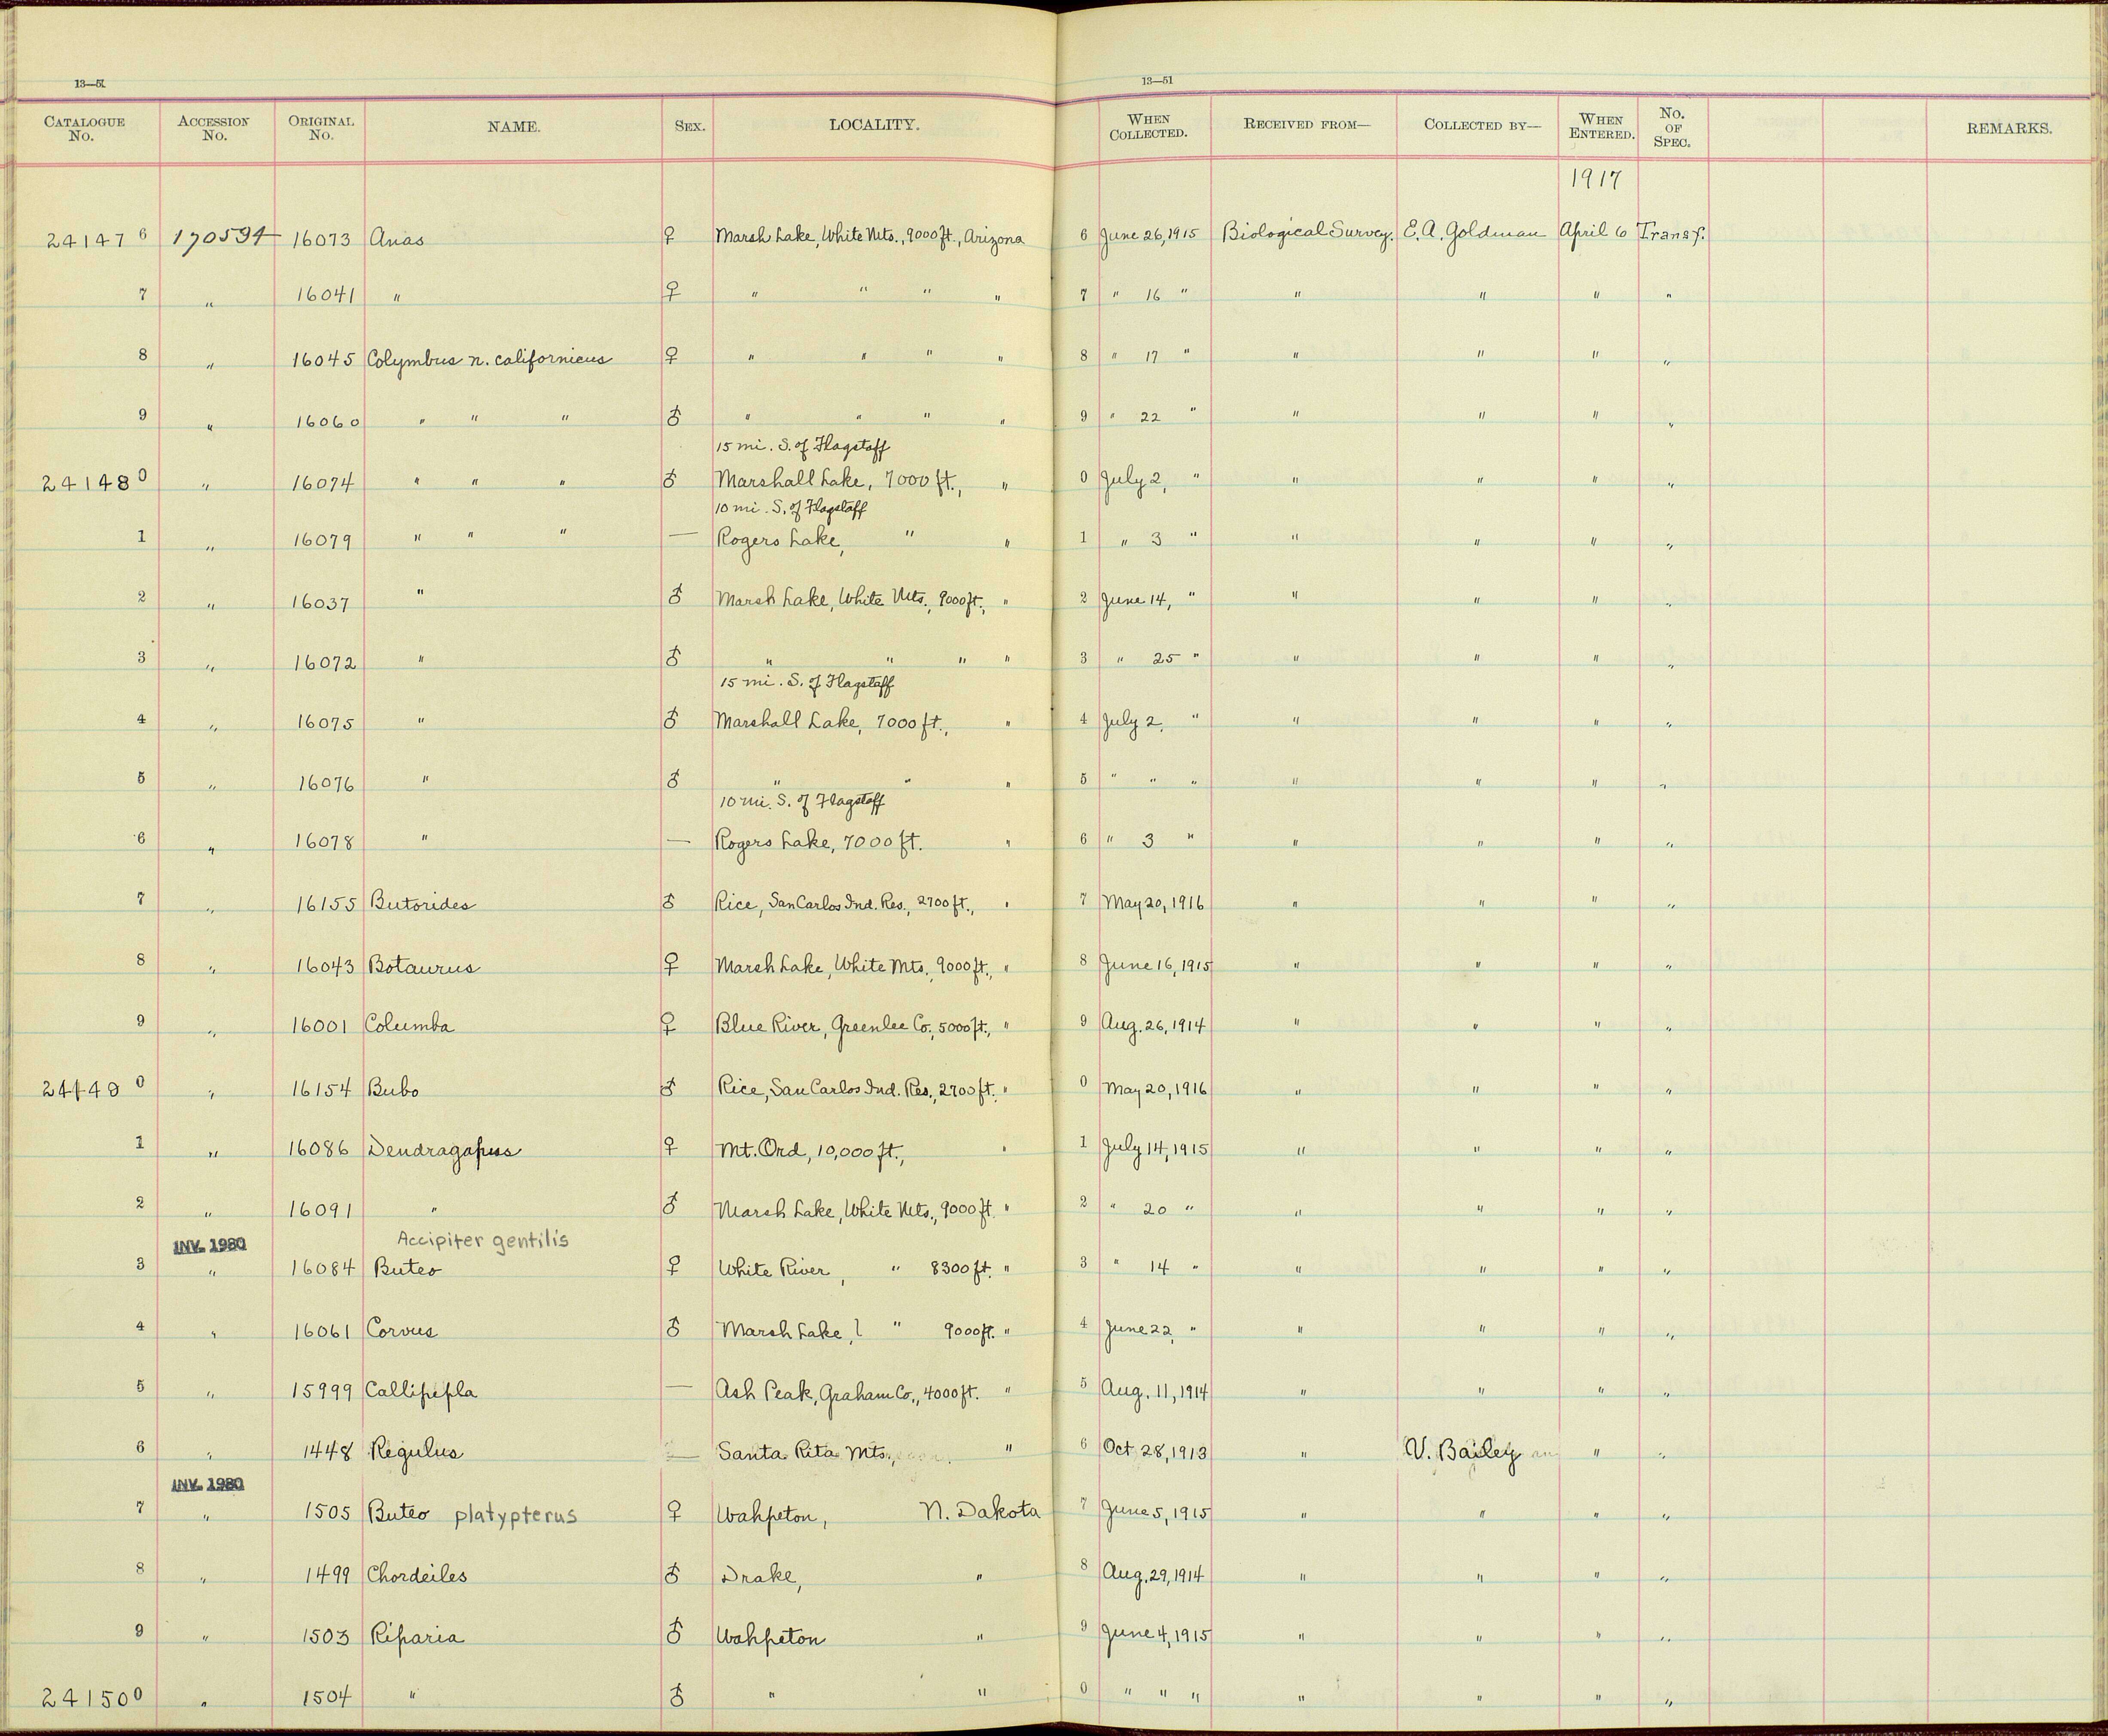 13—51 13—51
CATALOGUE No. ACCESSION No. ORIGINAL No. NAME. SEX. LOCALITY. WHEN COLLECTED. RECEIVED FROM— COLLECTED BY— WHEN ENTERED. No. OF SPEC. REMARKS.
1917
241476 170594 16073 Anas ♀ Marsh Lake, White Mts., 9000 ft., Arizona 6 June 26, 1915 Biological Survey. E. A. Goldman April 6 Transf.
7 " 16041 " ♀ " " " " 7 " 16 " " " " "
8 " 16045 Colymbus n. californicus ♀ " " " " 8 " 17 " " " " "
9 " 16060 " " " ♂ " " " " 9 " 22 " " " " "
15 mi. S. of Flagstaff
241480 " 16074 " " " ♂ Marshall Lake, 7000 ft., " 0 July 2, " " " " "
10 mi. S. of Flagstaff
1 " 16079 " " " — Rogers Lake, " " 1 " 3 " " " " "
2 " 16037 " ♂ Marsh Lake, White Mts., 9000 ft., " 2 June 14, " " " " "
3 " 16072 " ♂ " " " " 3 " 25 " " " " "
15 mi. S. of Flagstaff
4 " 16075 " ♂ Marshall Lake, 7000 ft., " 4 July 2, " " " " "
5 " 16076 " ♂ " " " 5 " " " " " " "
10 mi. S. of Flagstaff
6 " 16078 " — Rogers Lake, 7000 ft. " 6 " 3 " " " " "
7 " 16155 Butorides ♂ Rice, San Carlos Ind. Res., 2700 ft., " 7 May 20, 1916 " " " "
8 " 16043 Botaurus ♀ Marsh Lake, White Mts., 9000 ft., " 8 June 16, 1915 " " " "
9 " 16001 Columba ♀ Blue River, Greenlee Co., 5000 ft., " 9 Aug. 26, 1914 " " " "
241490 " 16154 Bubo ♂ Rice, San Carlos Ind. Res., 2700 ft. " 0 May 20, 1916 " " " "
1 " 16086 Dendragapus ♀ Mt. Ord, 10,000 ft., " 1 July 14, 1915 " " " "
2 " 16091 " ♂ Marsh Lake, White Mts., 9000 ft. " 2 " 20 " " " " "
INV. 1980 Accipiter gentilis
3 " 16084 Buteo ♀ White River, " 8300 ft. " 3 " 14 " " " " "
4 " 16061 Corvus ♂ Marsh Lake, " 9000 ft. " 4 June 22, " " " " "
5 " 15999 Callipepla — Ash Peak, Graham Co., 4000 ft. " 5 Aug. 11, 1914 " " " "
6 " 1448 Regulus — Santa Rita Mts., " 6 Oct 28, 1913 " V. Bailey " "
INV. 1980
7 " 1505 Buteo platypterus ♀ Wahpeton, N. Dakota 7 June 5, 1915 " " " "
8 " 1499 Chordeiles ♂ Drake, " 8 Aug. 29, 1914 " " " "
9 " 1503 Riparia ♂ Wahpeton " 9 June 4, 1915 " " " "
241500 " 1504 " ♂ " " 0 " " " " " " "